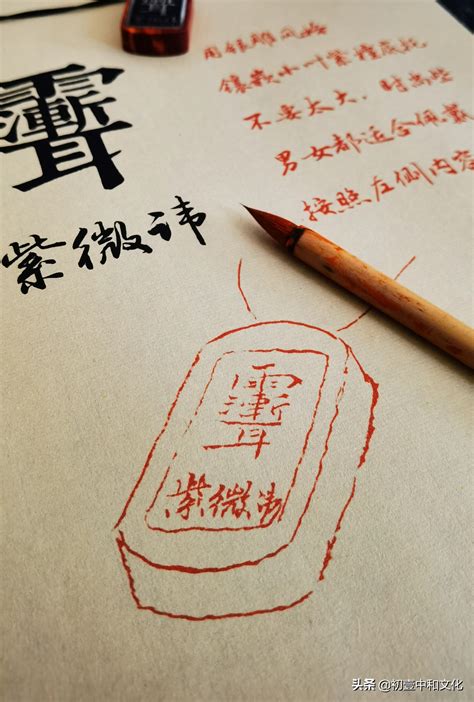 紫微讳
用银雕风格
镶嵌小叶紫檀底托
不要太大，时尚些
男女都适合佩戴
按照左侧内容
紫微讳
头条 @初壹中和文化